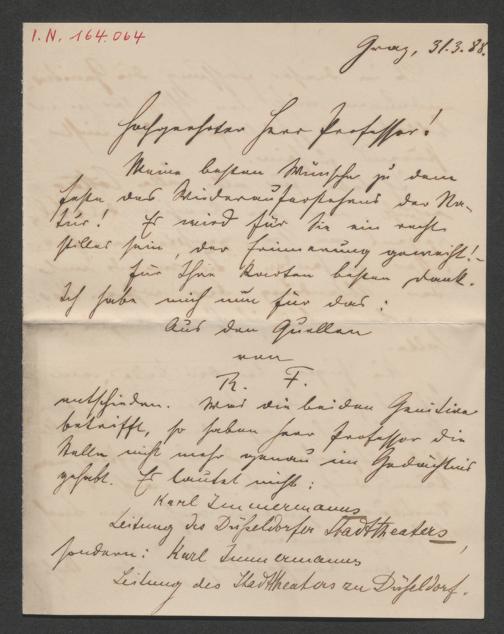 I.N. 164.064
Graz, 31.3.88.
Hochgeehrter Herr Professor!
Meine besten Wünsche zu dem
Feste des Wiederauferstehens der Na-
tur! Es wird für Sie ein recht
stilles sein, der Erinnerung geweiht! -
Für Ihre Karten besten Dank.
Ich habe mich nun für das:
Aus den Quellen
von
R. F.
entschieden. Was die beiden Genitive
betrifft, so haben Herr Professor die
Stelle nicht mehr genau im Gedächtnis
gehabt. Es lautet nicht:
Karl Immermanns
Leitung des Düsseldorfer Stadttheaters,
sondern: Karl Immermanns
Leitung des Stadttheaters zu Düsseldorf.